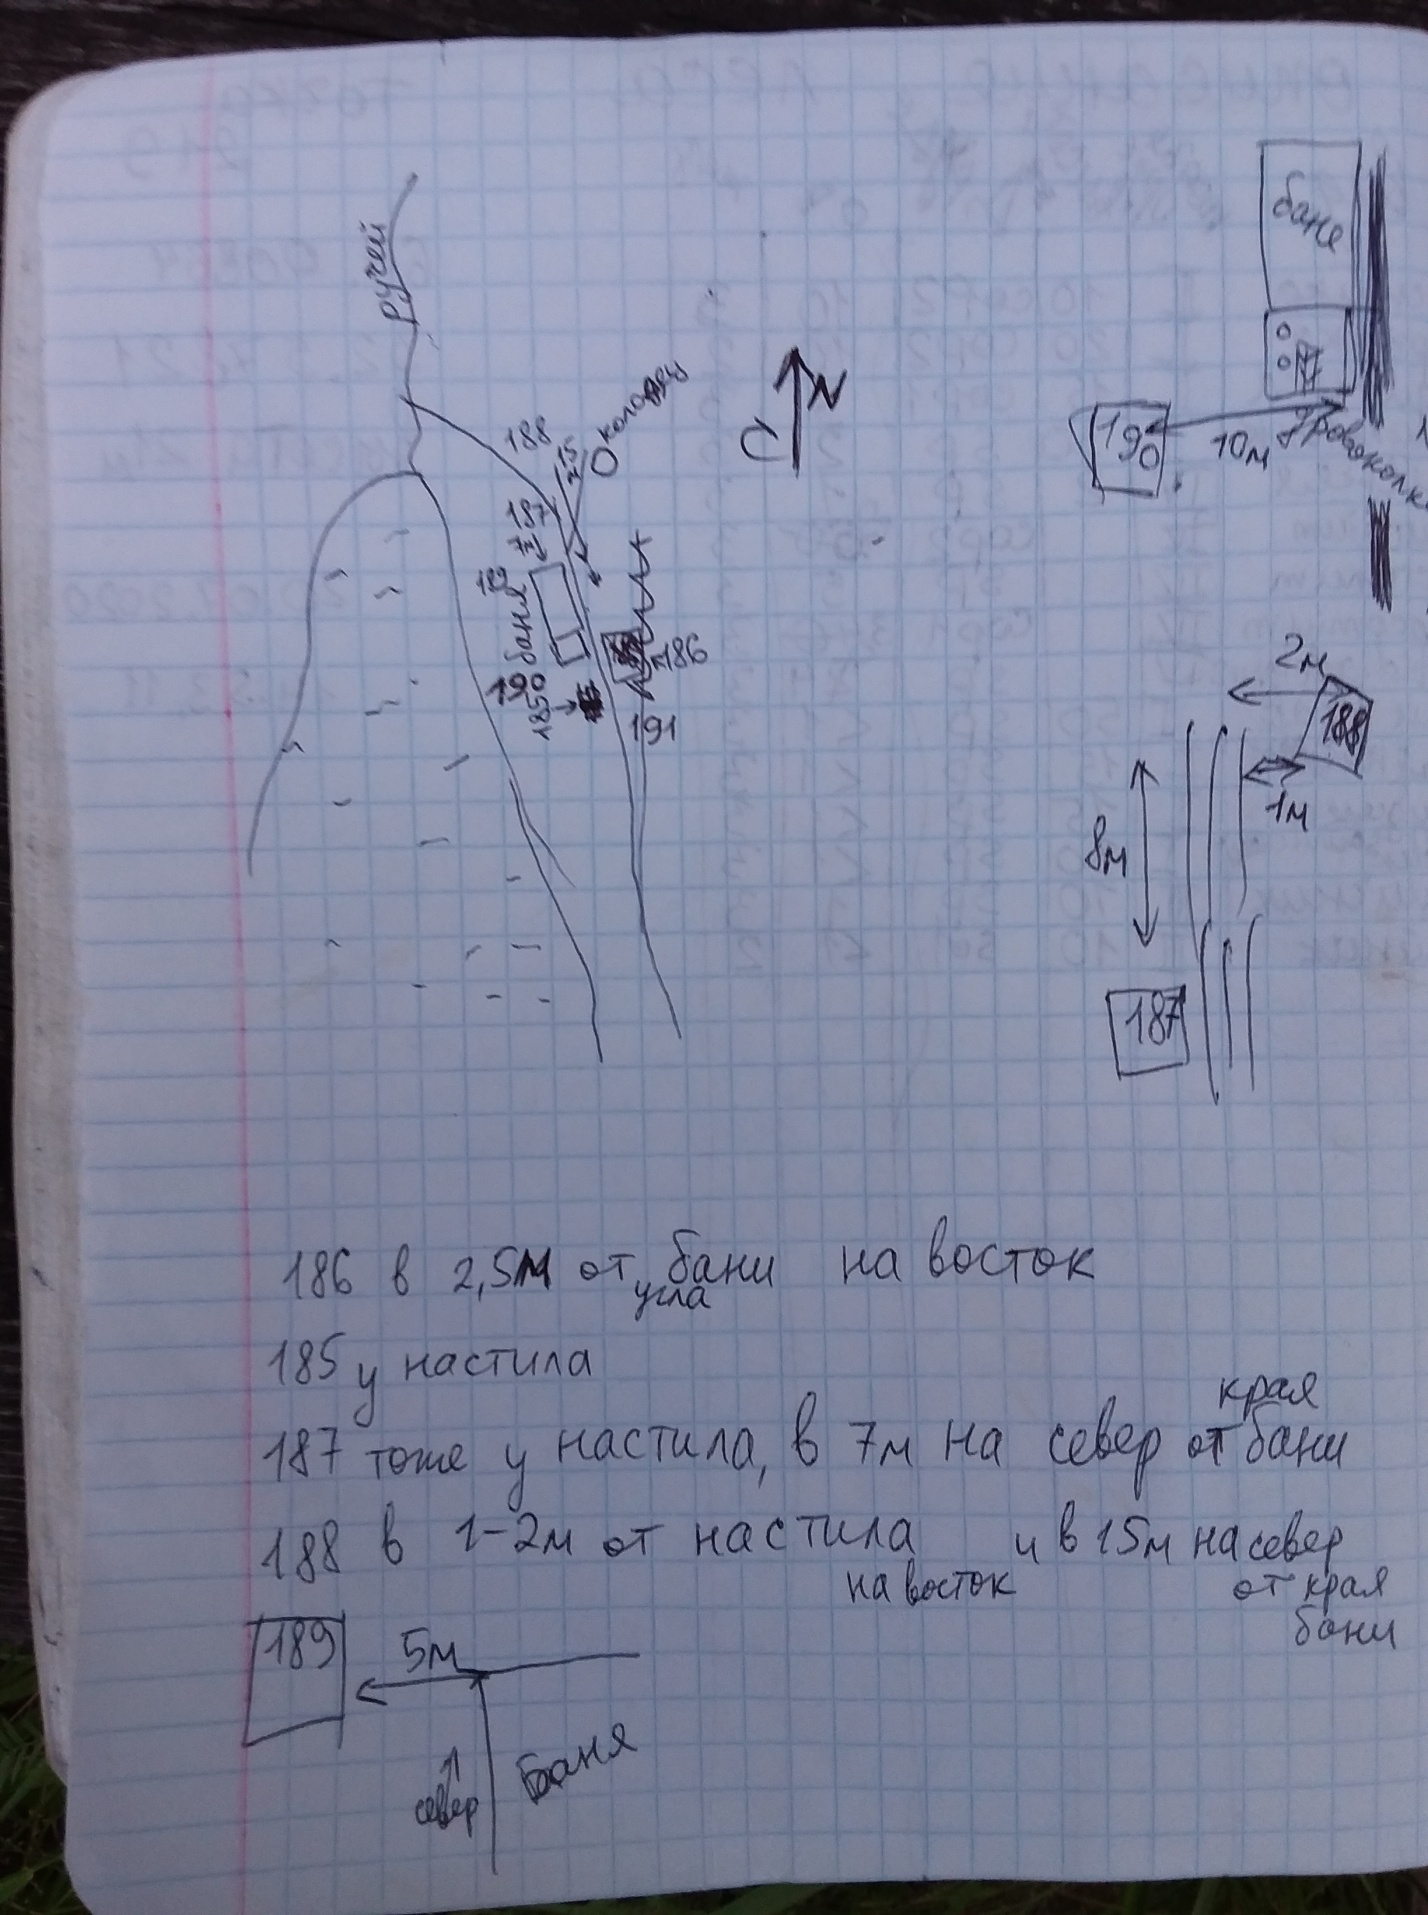 ручей
188
15
м
колодец
187
7м
189
баня
190
185
186
191
С
N
бане
190
10м
дровоколка
2м
188
1м
8м
187
186 в 2,5м от угла бани на восток
185 у настила
187 тоже у настила, в 7м на север от края бани
188 в 1-2м от настила на восток и в 15м на север
от края
бани
189
5м
север
Баня